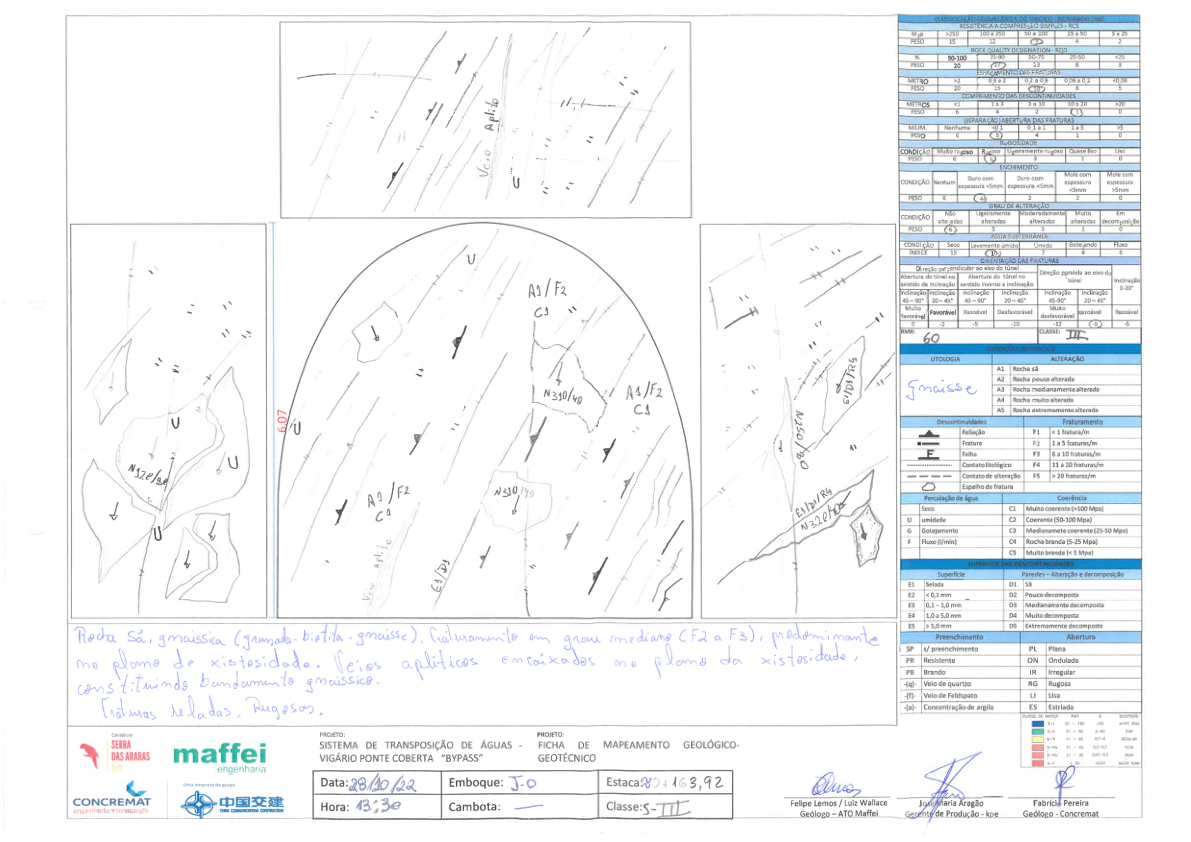 Veio Aplito
U
U
A1/F2
C1
N310/40
A1/F2
C1
6.07
U
U
N120/90
U
U
A1/F2
C1
N310/45
Veio aplito
E1/D1
E1/D1/RG
N250/80
E1/D1/RG
CLASSIFICAÇÃO GEOMECÂNICA DO MACIÇO - BIENIAWSKI 1989
RESISTÊNCIA A COMPRESSÃO SIMPLES - RCS
MPa >250 100 a 250 50 a 100 25 a 50 5 a 25
PESO 15 12 7 4 2
ROCK QUALITY DESIGNATION - RQD
% 90-100 75-90 50-75 25-50 <25
PESO 20 17 13 8 3
ESPAÇAMENTO DAS FRATURAS
METRO >2 0,6 a 2 0,2 a 0,6 0,06 a 0,2 <0,06
PESO 20 15 10 8 5
COMPRIMENTO DAS DESCONTINUIDADES
METROS <1 1 a 3 3 a 10 10 a 20 >20
PESO 6 4 2 1 0
SEPARAÇÃO/ABERTURA DAS FRATURAS
MILIM. Nenhuma <0,1 0,1 a 1 1 a 5 >5
PESO 6 5 4 1 0
RUGOSIDADE
CONDIÇÃO Muito rugoso Rugoso Ligeiramente rugoso Quase liso Liso
PESO 6 5 3 1 0
ENCHIMENTO
CONDIÇÃO Nenhum Duro com espessura <5mm Duro com espessura <5mm Mole com espessura <5mm Mole com espessura >5mm
PESO 6 4 2 2 0
GRAU DE ALTERAÇÃO
CONDIÇÃO Não alteradas Ligeiramente alteradas Moderadamente alteradas Muito alteradas Em decomposição
PESO 6 5 3 1 0
ÁGUA SUBTERRÂNEA
CONDIÇÃO Seco Levemente úmido Úmido Gotejando Fluxo
ÍNDICE 15 10 7 4 0
ORIENTAÇÃO DAS FRATURAS
Direção perpendicular ao eixo do túnel Direção paralela ao eixo do túnel Inclinação 0-20°
Abertura do túnel no sentido da inclinação Abertura do túnel no sentido inverso a inclinação
Inclinação 45 – 90° Inclinação 20 – 45° Inclinação 45 – 90° Inclinação 20 – 45° Inclinação 45-90° Inclinação 20 – 45°
Muito favorável Favorável Razoável Desfavorável Muito desfavorável Razoável Razoável
0 -2 -5 -10 -12 -5 -5
RMR: 60 CLASSE: III
LITOLOGIA ALTERAÇÃO
Gnaisse
A1 Rocha sã
A2 Rocha pouco alterada
A3 Rocha medianamente alterada
A4 Rocha muito alterada
A5 Rocha extremamente alterada
Descontinuidades Fraturamento
Foliação F1 < 1 fratura/m
Fratura F2 1 a 5 fraturas/m
F Falha F3 6 a 10 fraturas/m
Contato litológico F4 11 a 20 fraturas/m
Contato de alteração F5 > 20 fraturas/m
Espelho de fratura
Percolação de água Coerência
Seco C1 Muito coerente (>100 Mpa)
U umidade C2 Coerente (50-100 Mpa)
G Gotejamento C3 Medianamete coerente (25-50 Mpa)
F Fluxo (l/min) C4 Rocha branda (5-25 Mpa)
C5 Muito branda (< 5 Mpa)
SUPERFÍCIE DAS DESCONTINUIDADES
Superfície Paredes – Alteração e decomposição
E1 Selada D1 Sã
E2 < 0,1 mm D2 Pouco decomposta
E3 0,1 – 1,0 mm D3 Medianamente decomposta
E4 1,0 a 5,0 mm D4 Muito decomposta
E5 > 5,0 mm D5 Extremamente decomposta
Preenchimento Abertura
SP s/ preenchimento PL Plana
PR Resistente ON Ondulada
PB Brando IR Irregular
-(q)- Veio de quartzo RG Rugosa
-(f)- Veio de Feldspato LI Lisa
-(a)- Concentração de argila ES Estriada
Rocha Sã, gnaissica (granada-biotita-gnaisse). Fraturamento em grau mediano (F2 a F3), predominante
no plano de xistosidade. Veios apliticos encaixados no plano da xistosidade,
constituindo bandamento gnaissico.
Fraturas seladas, Rugosas.
Consórcio
SERRA
DAS ARARAS
maffei
engenharia
CONCREMAT
engenharia e tecnologia
Uma empresa do grupo
中国交建
PROJETO:
SISTEMA DE TRANSPOSIÇÃO DE ÁGUAS -
VIGÁRIO PONTE COBERTA "BYPASS"
PROJETO:
FICHA DE MAPEAMENTO GEOLÓGICO-
GEOTÉCNICO
Data: 28/10/22 Emboque: J-0
Hora: 13:30 Cambota: — Classe: S-III
Felipe Lemos / Luiz Wallace
Geólogo – ATO Maffei
José Maria Aragão
Gerente de Produção - kpe
Fabrício Pereira
Geólogo - Concremat